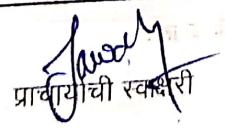 प्राचार्याची स्वाक्षरी